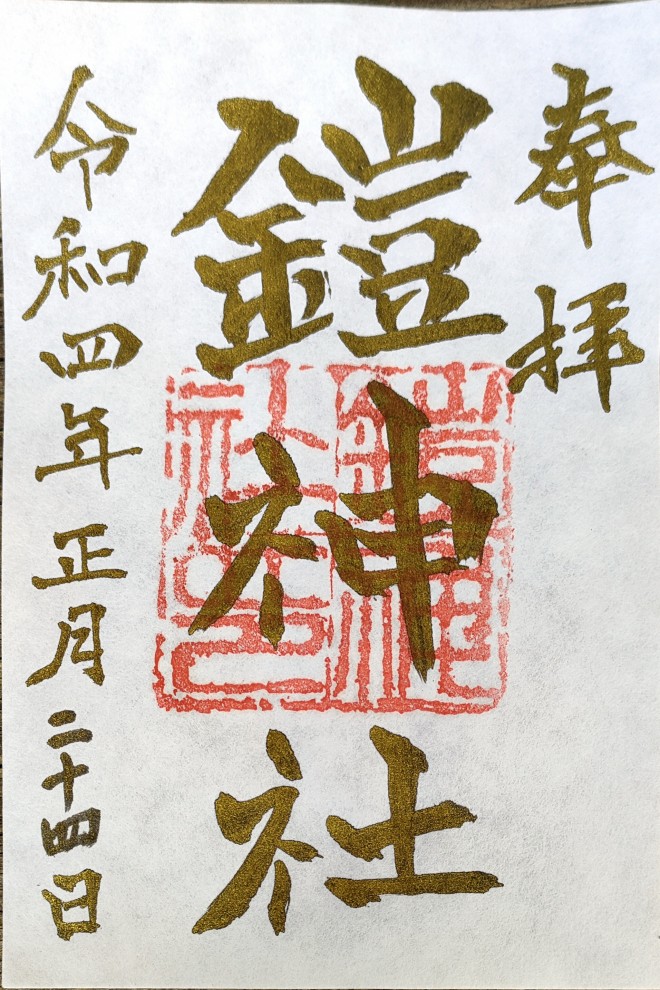 奉拝
鎧神社
鎧神社印
令和四年正月二十四日